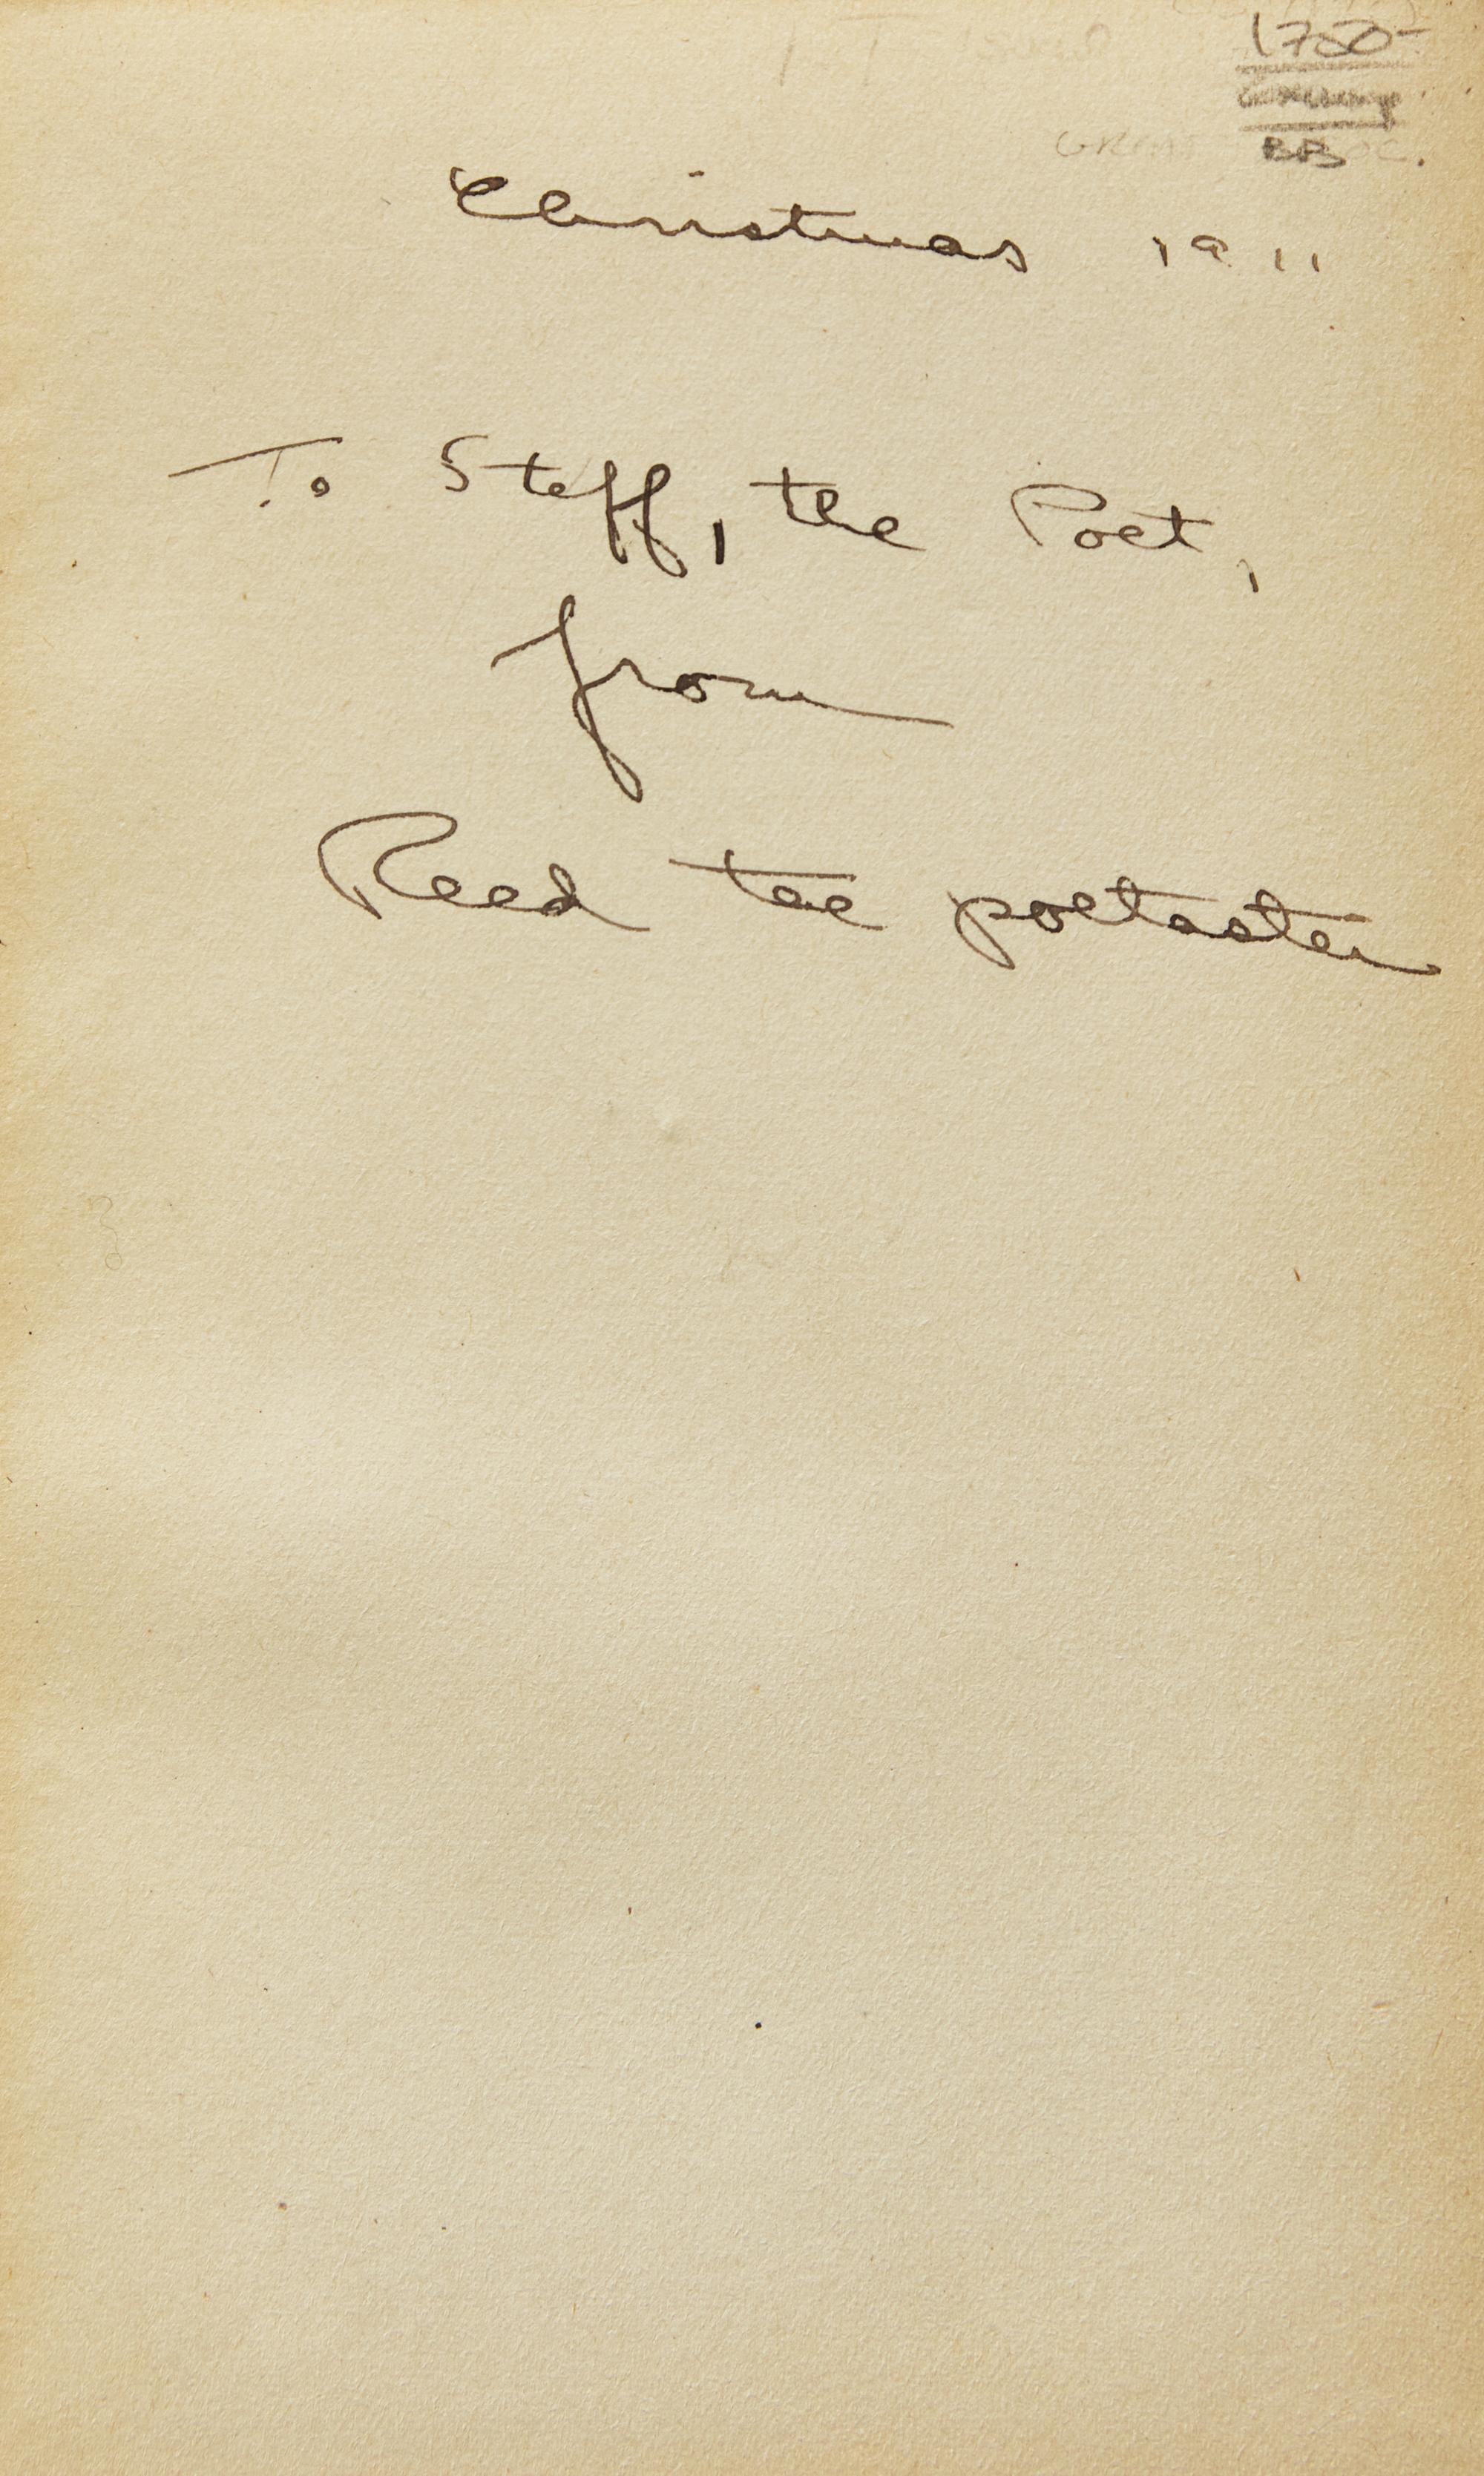 1750-
BB
Christmas 1911
To Steff, the Poet,
from
Reed the poetaster